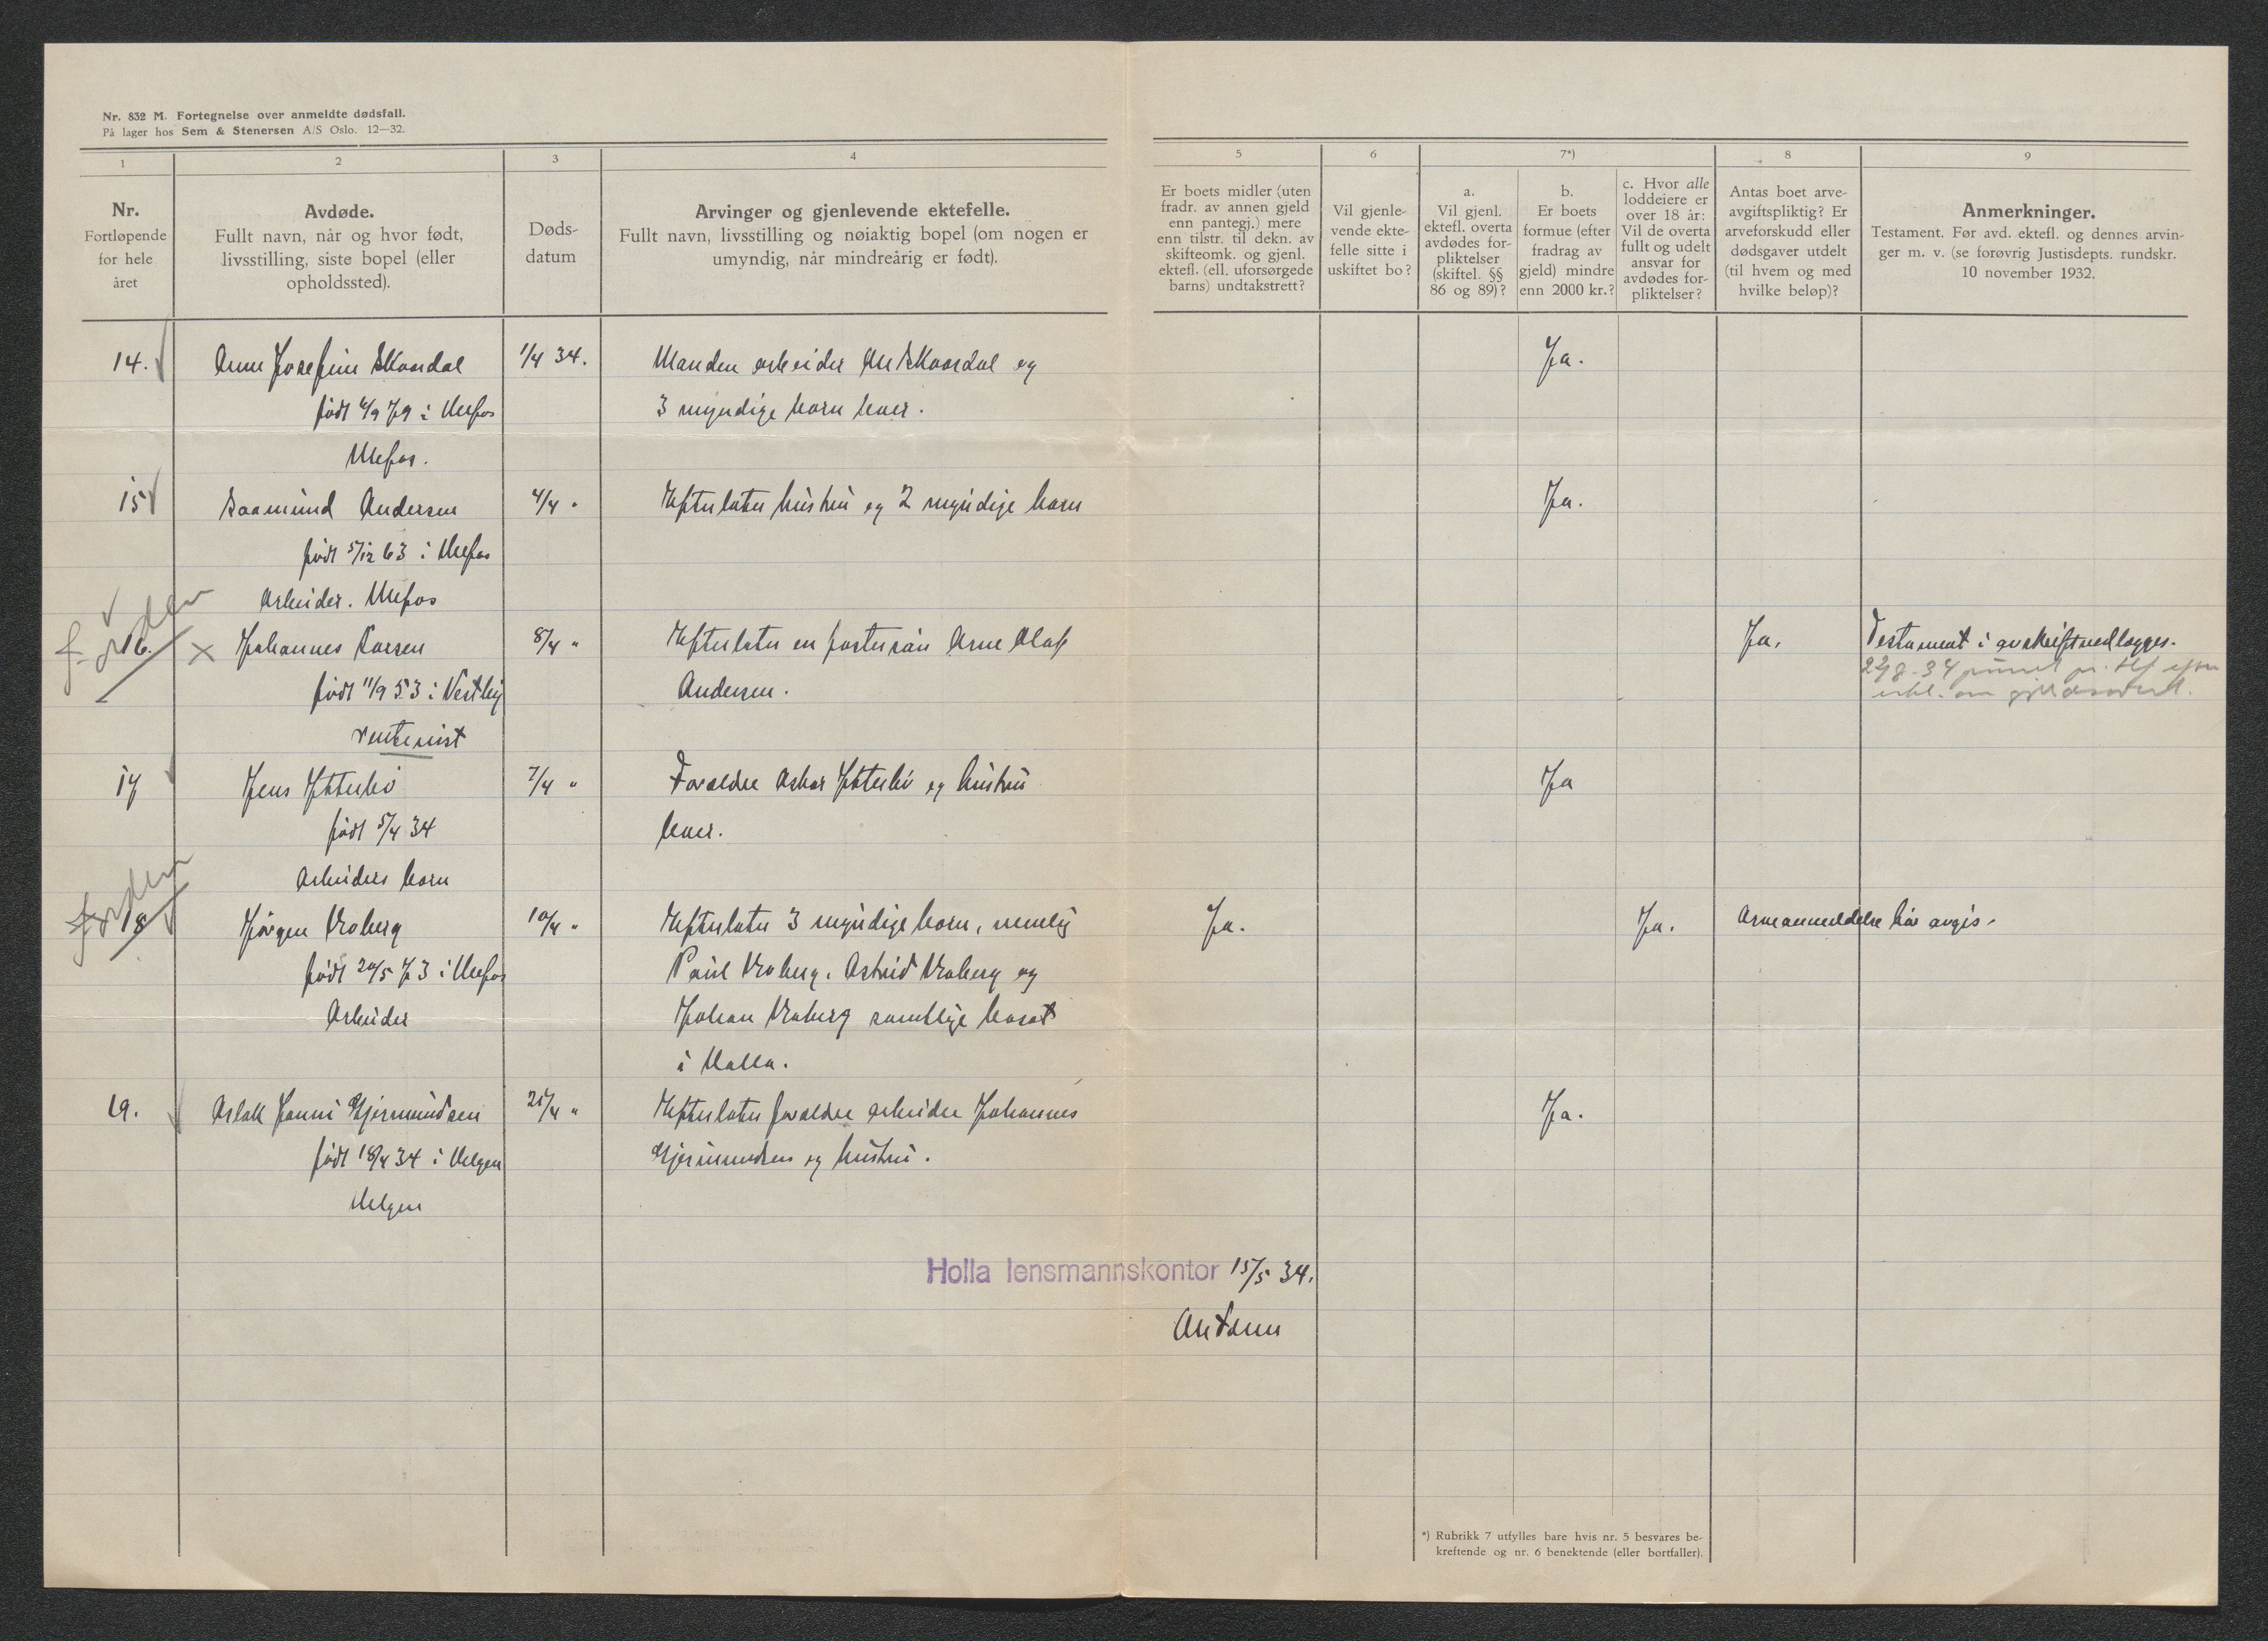 Nr. 832 M. Fortegnelse over anmeldte dødsfall.
På lager hos Sem & Stenersen A/S Oslo. 12—32.
1
2
3
4
5
6
7*)
8
9
Nr.
Fortløpende
for hele
året
Avdøde.
Fullt navn, når og hvor født,
livsstilling, siste bopel (eller
opholdssted).
Døds-
datum
Arvinger og gjenlevende ektefelle.
Fullt navn, livsstilling og nøiaktig bopel (om nogen er
umyndig, når mindreårig er født).
Er boets midler (uten
fradr. av annen gjeld
enn pantegj.) mere
enn tilstr. til dekn. av
skifteomk. og gjenl.
ektefl. (ell. uforsørgede
barns) undtakstrett?
Vil gjenle-
vende ekte-
felle sitte i
uskiftet bo?
a.
Vil gjenl.
ektefl. overta
avdødes for-
pliktelser
(skiftel. §§
86 og 89)?
b.
Er boets
formue (efter
fradrag av
gjeld) mindre
enn 2000 kr.?
c. Hvor alle
loddeiere er
over 18 år:
Vil de overta
fullt og udelt
ansvar for
avdødes for-
pliktelser?
Antas boet arve-
avgiftspliktig? Er
arveforskudd eller
dødsgaver utdelt
(til hvem og med
hvilke beløp)?
Anmerkninger.
Testament. Før avd. ektefl. og dennes arvin-
ger m. v. (se forøvrig Justisdepts. rundskr.
10 november 1932.
14. Anne Josefine Skaardal 1/4 34. Manden arbeider Skaardal og Ja.
født 79 i Ulefos 3 myndige barn lever.
Ulefos.
15 Saamund Andersen 4/4 " Efterlater hustru og 2 myndige barn Ja.
født 5/12 63 i Ulefos
Arbeider. Ulefos
16. x Johannes 8/4 " Efterlater en fostersøn Arne Olaf Ja. Testament i avskrift vedlegges.
født 11/9 53 i Vestby Andersen.
rentenist
17 Jens Ytterbø 7/4 " Forældre Ytterbø og hustru Ja
født 5/4 34 lever.
Arbeiders barn
18 Jørgen Vraberg 10/4 " Efterlater 3 myndige barn, nemlig Ja. Ja. Arveanmeldelse blir avgis.
født 20/5 73 i Ulefos Paul Vraberg, Astrid Vraberg og
Arbeider Johan Vraberg samtlige bosat
i Holla.
19. Aslak Gjermundsen 21/4 " Efterlater forældre arbeider Johannes Ja.
født 18/4 34 i Helgen Gjermundsen og hustru.
Helgen
Holla lensmannskontor 15/5 34.
*) Rubrikk 7 utfylles bare hvis nr. 5 besvares be-
kreftende og nr. 6 benektende (eller bortfaller).